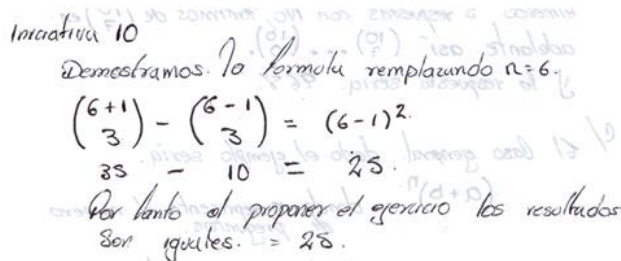 Iniciativa 10
Demostramos. la formula remplazando n=6.
(6+1 3) - (6-1 3) = (6-1)².
35 - 10 = 25.
Por tanto al proponer el ejercicio los resultados
Son iguales. = 25.